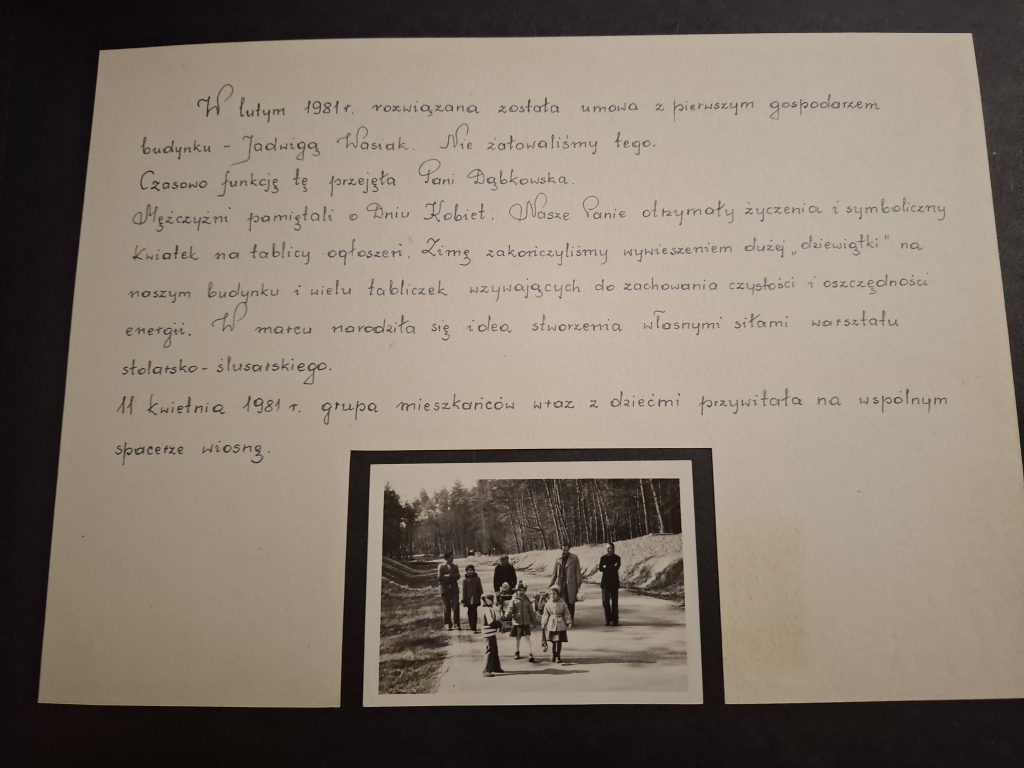 W lutym 1981 r. rozwiązana została umowa z pierwszym gospodarzem
budynku - Jadwigą Wasiak. Nie żałowaliśmy tego.
Czasowo funkcję tę przejęła Pani Dąbkowska.
Mężczyźni pamiętali o Dniu Kobiet. Nasze Panie otrzymały życzenia i symboliczny
kwiatek na tablicy ogłoszeń. Zimę zakończyliśmy wywieszeniem dużej „dziewiątki" na
naszym budynku i wielu tabliczek wzywających do zachowania czystości i oszczędności
energii. W marcu narodziła się idea stworzenia własnymi siłami warsztatu
stolarsko - ślusarskiego.
11 kwietnia 1981 r. grupa mieszkańców wraz z dziećmi przywitała na wspólnym
spacerze wiosnę.